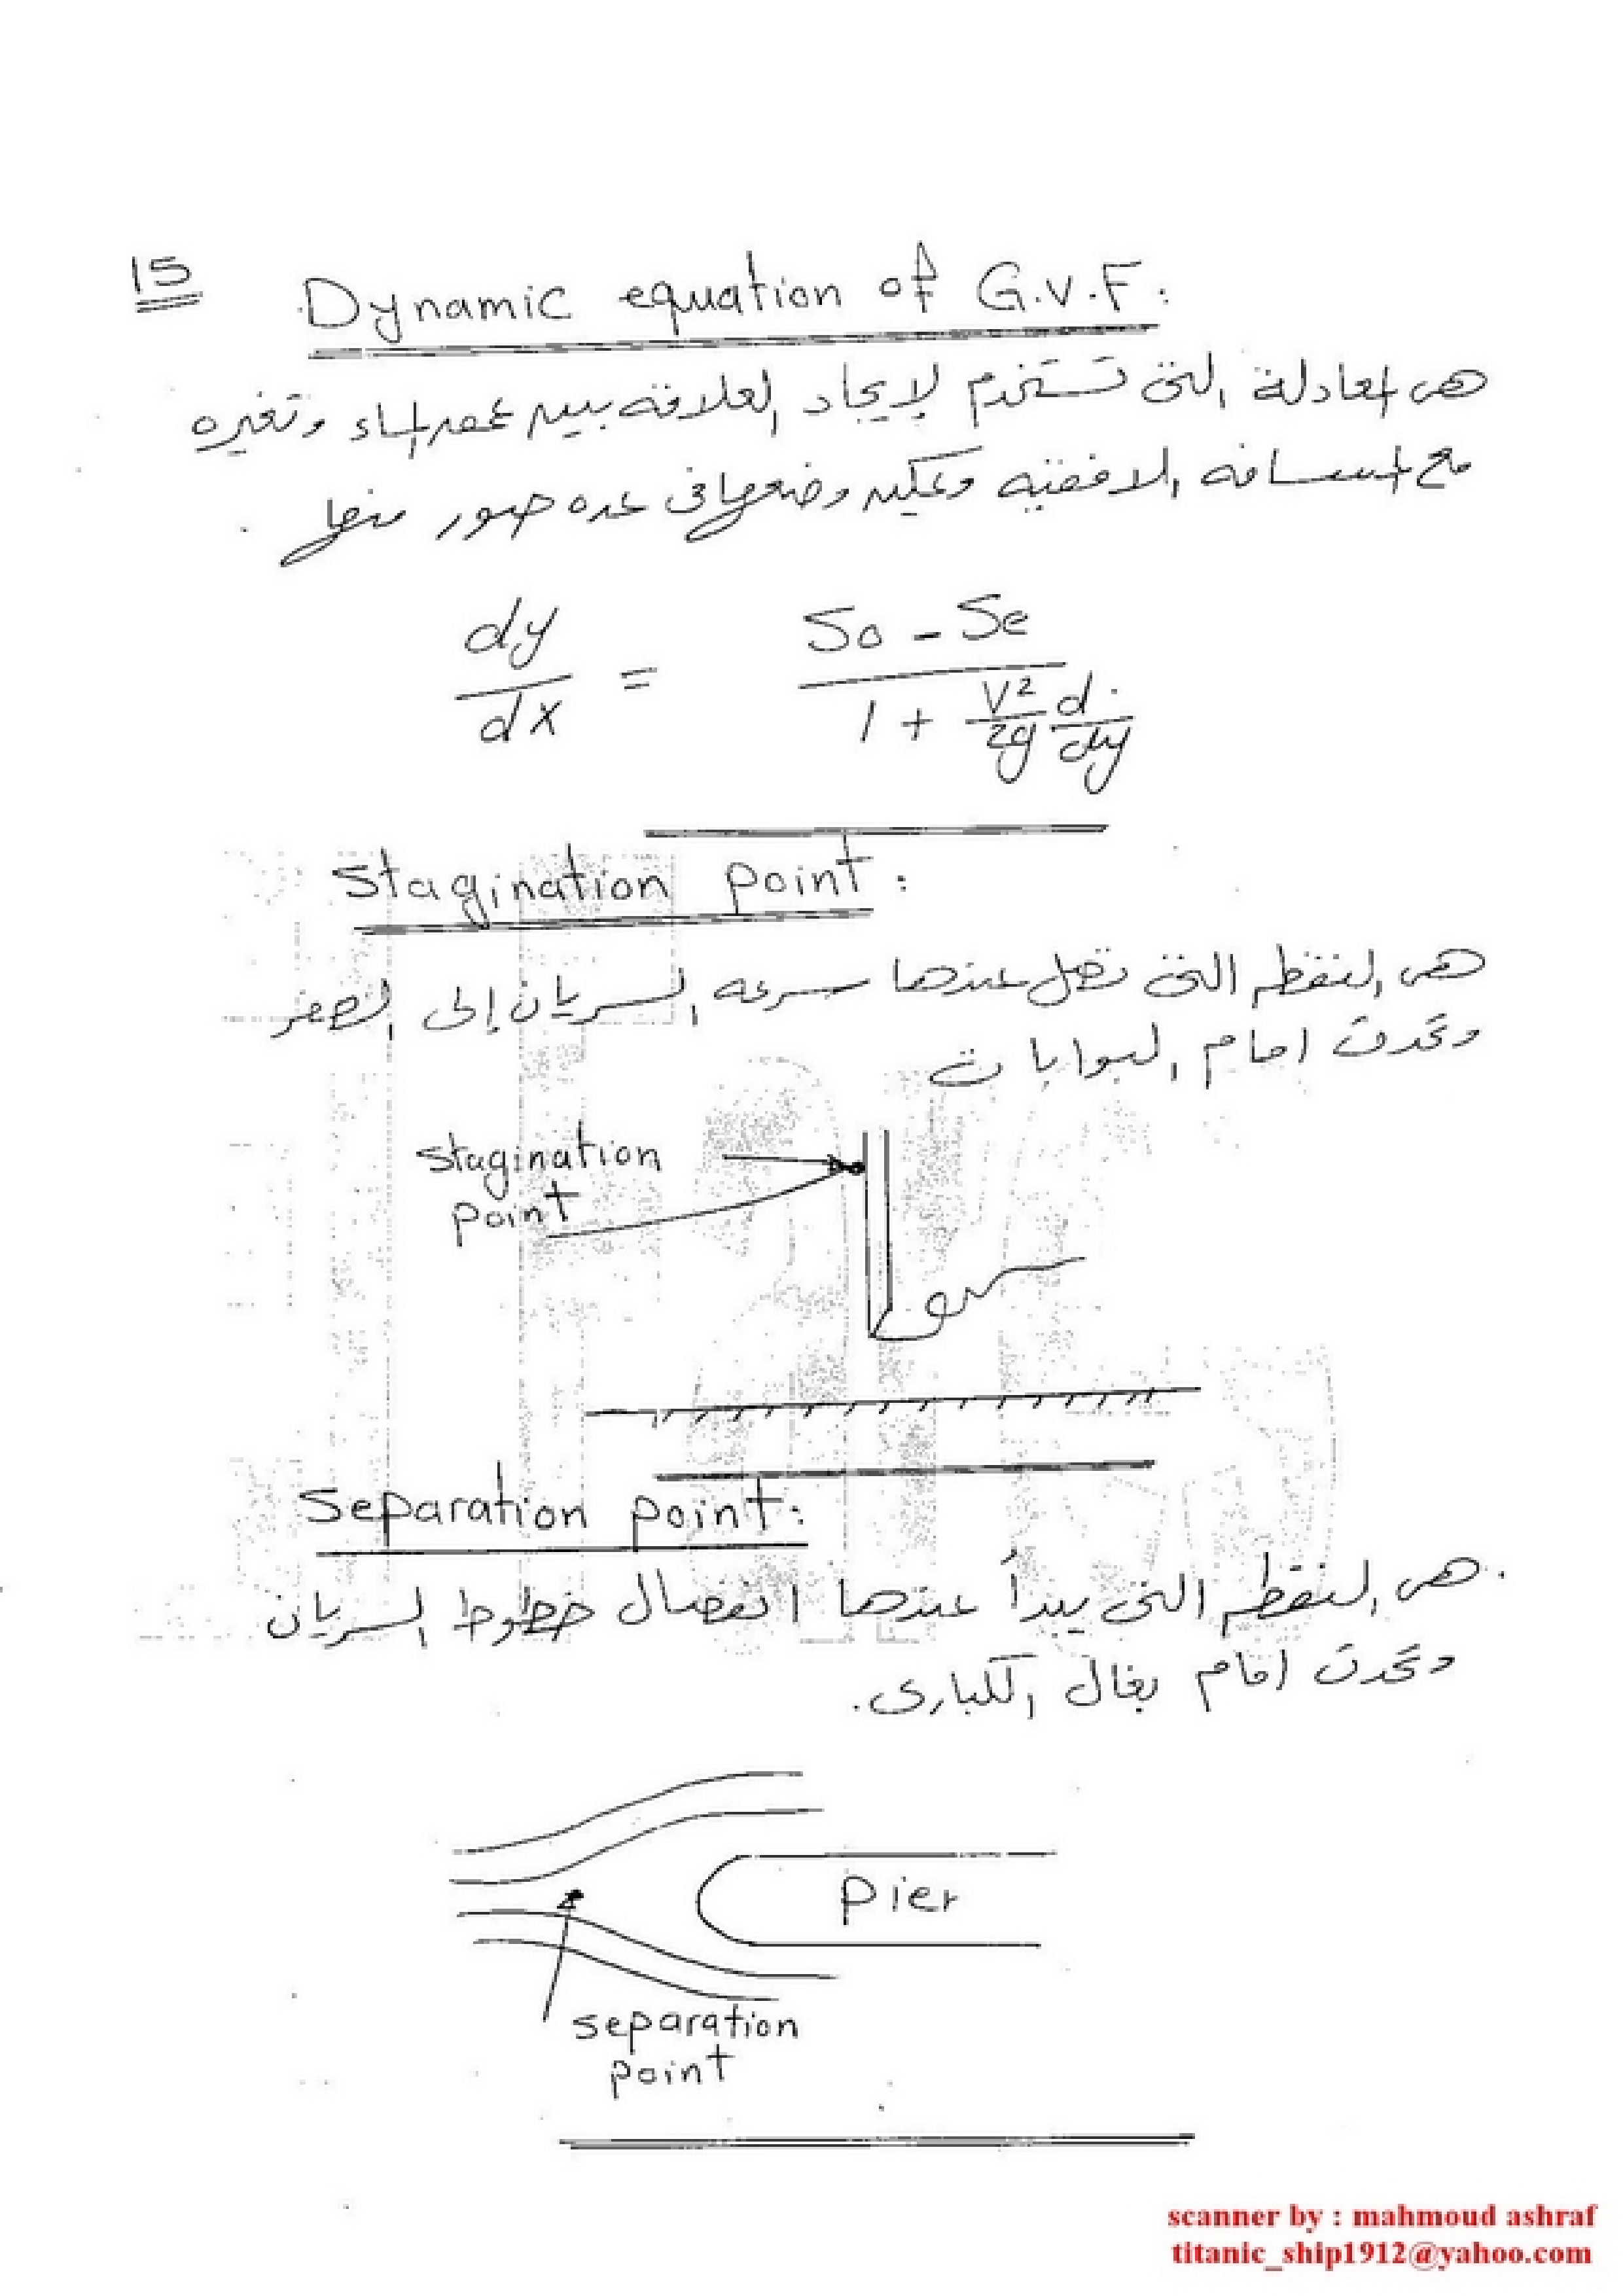 15
Dynamic equation of G.V.F:
هى المعادلة التى تستخدم لإيجاد العلاقة بين عمق الماء وتغيره
مع المسافه الافقيه ويمكن وضعها فى عده صور منها .
dy/dx = So - Se / 1 + V²/2g d/dy
Stagination point:
هى النقطه التى تصل عندها سرعه السريان إلى الصفر
وتحدث امام البوابات
Stagination
point
Separation point:
هى النقطه التى يبدأ عندها انفصال خطوط السريان
وتحدث امام بغال الكبارى.
Pier
separation
point
scanner by : mahmoud ashraf
titanic_ship1912@yahoo.com